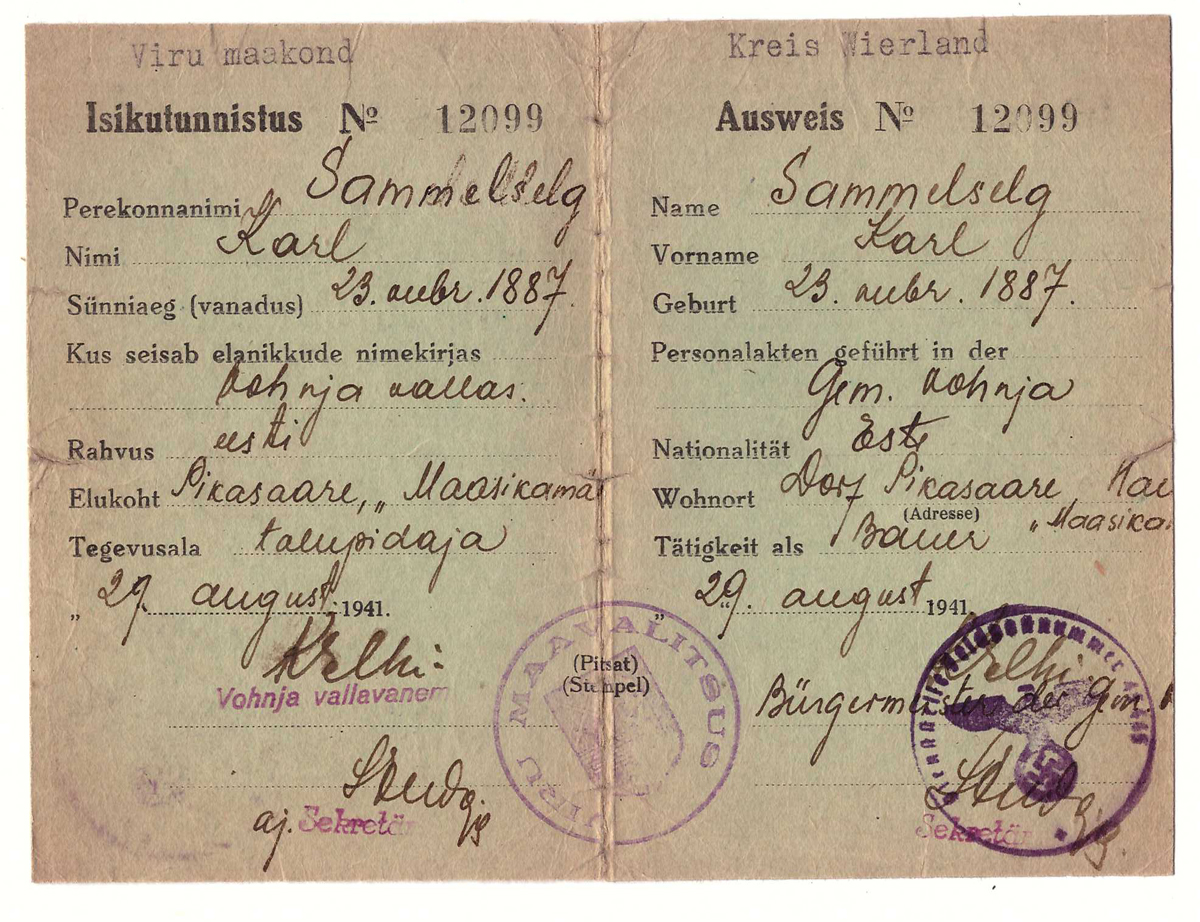 Viru maakond
Isikutunnistus № 12099
Perekonnanimi Sammelselg
Nimi Karl
Sünniaeg (vanadus) 23. nvbr. 1887.
Kus seisab elanikkude nimekirjas
Vohnja vallas.
Rahvus eesti
Elukoht Pikasaare, „Maasikamä
Tegevusala talupidaja
„ 29. august 1941.
Vohnja vallavanem
aj. Sekretär
VIRU MAAVALITSUS
(Pitsat)
(Stempel)
Kreis Wierland
Ausweis № 12099
Name Sammelselg
Vorname Karl
Geburt 23. nvbr. 1887.
Personalakten geführt in der
Gem. Vohnja
Nationalität Este
Wohnort Dorf Pikasaare,
(Adresse) „Maasika
Tätigkeit als Bauer
„ 29. august 1941.
Bürgermeister der Gem. V
Sekretär